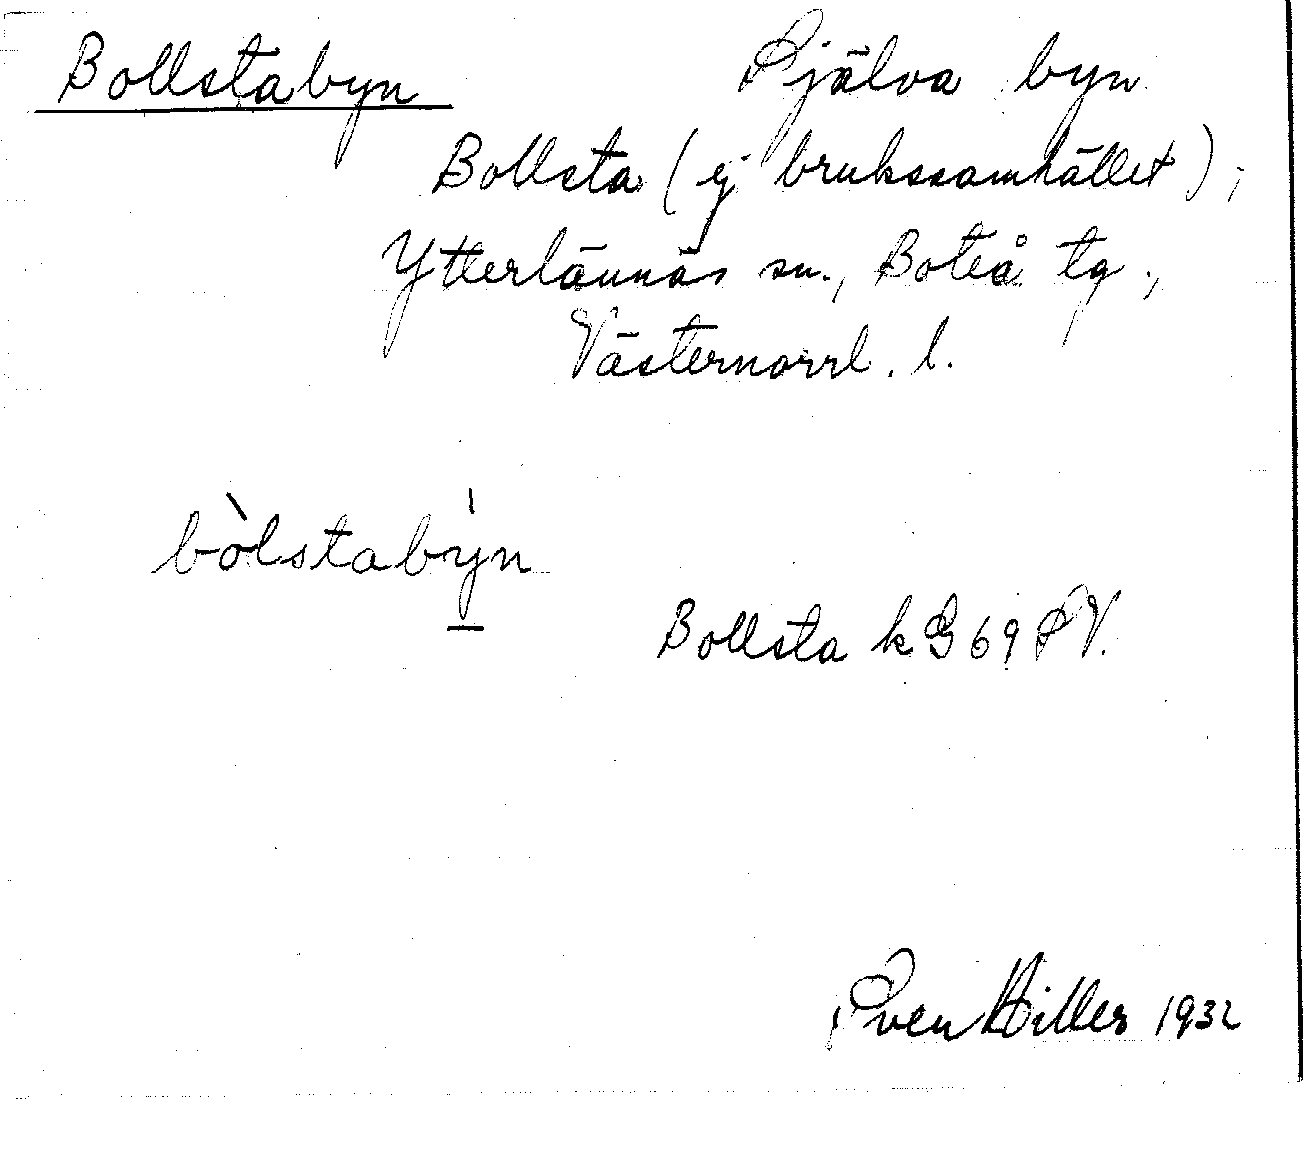 Bollstabyn Själva byn
Bollsta (ej brukssamhället),
Ytterlännäs sn., Boteå tg.,
Västernorrl. l.
bòlstabýn
Bollsta k G 69 SV.
Sven Hiller 1932